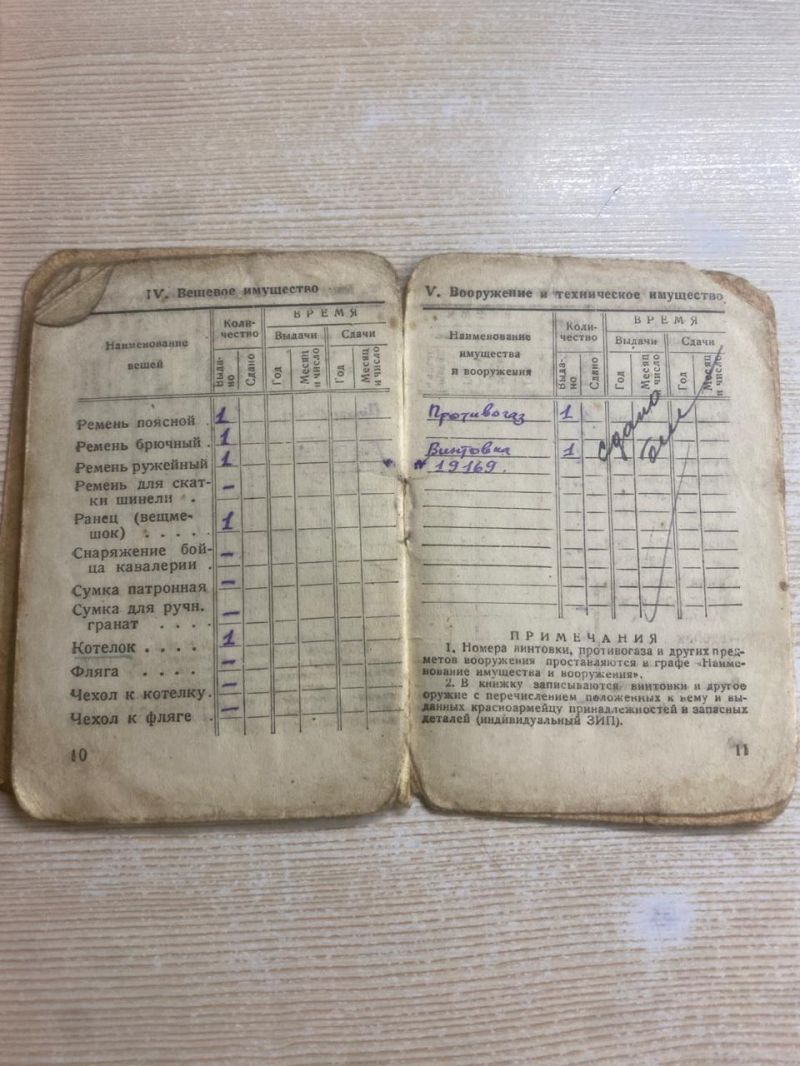 IV. Вещевое имущество
Наименование
вещей
Коли-
чество
ВРЕМЯ
Выдачи
Сдачи
Выда-
но
Сдано
Год
Месяц
и число
Год
Месяц
и число
Ремень поясной . 1
Ремень брючный . 1
Ремень ружейный 1
Ремень для скат-
ки шинели . –
Ранец (вещме-
шок) . . . . . 1
Снаряжение бой-
ца кавалерии . –
Сумка патронная –
Сумка для ручн.
гранат . . . . –
Котелок . . . . 1
Фляга . . . . –
Чехол к котелку. –
Чехол к фляге . –
10
V. Вооружение и техническое имущество
Наименование
имущества
и вооружения
Коли-
чество
ВРЕМЯ
Выдачи
Сдачи
Выда-
но
Сдано
Год
Месяц
и число
Год
Месяц
и число
Противогаз 1
Винтовка 1
№ 19169.
сдано
ПРИМЕЧАНИЯ
1. Номера винтовки, противогаза и других пред-
метов вооружения проставляются в графе «Наиме-
нование имущества и вооружения».
2. В книжку записываются винтовки и другое
оружие с перечислением положенных к нему и вы-
данных красноармейцу принадлежностей и запасных
деталей (индивидуальный ЗИП).
11